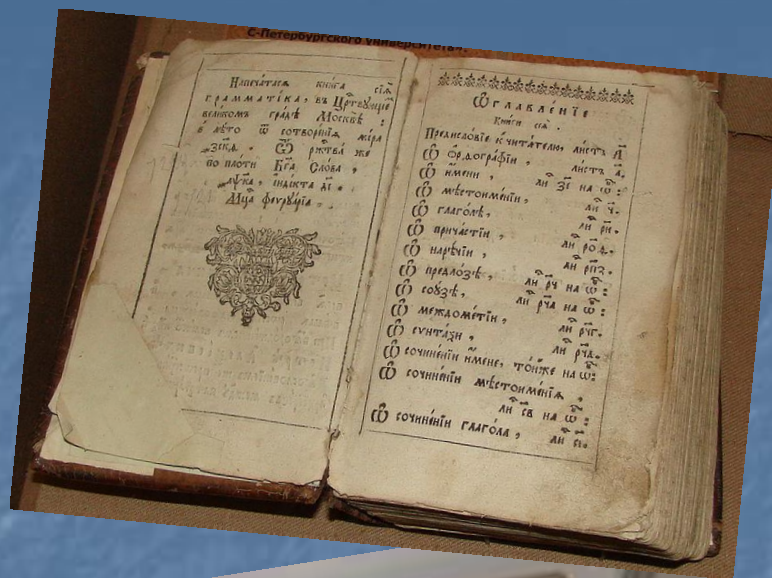 С-Петербургского университета.
Напеча́тасѧ кни́га сїѧ̀
грамматі́ка, въ црⷭ҇твующе
вели́комъ гра́дѣ Москвѣ̀:
в лѣ́то ѿ сотворе́нїѧ ми́ра
Ѿ рж҃тва̀ же
по пло́ти Бг҃а Сло́ва,
і҆ндї́кта
Мц҃а феуруа́рїа
Ѡ҆главле́нїе
кни́ги сеѧ̀.
Предисло́вїе к̾ чита́телю, ли́стъ а҃
Ѡ҆ ѻ҆рѳогра́фїи, ли́стъ д҃.
Ѡ҆ и҆́мени, ли зі на ѡб:
Ѡ҆ мѣстоиме́нїи, ли ч҃.
Ѡ҆ глаго́лѣ, ли ри҃.
Ѡ҆ прича́стїи, ли
Ѡ҆ нарѣ́чїи, ли рпз.
Ѡ҆ предло́зѣ, ли рч на ѡб:
Ѡ҆ сою́зѣ, ли рча на ѡб:
Ѡ҆ междоме́тїи, ли рчг.
Ѡ҆ сѵнта́ѯи, ли рчд.
Ѡ҆ сочине́нїи и҆́мене, то́иже на ѡб:
Ѡ҆ сочине́нїи мѣстоиме́нїѧ,
ли св на ѡб:
Ѡ҆ сочине́нїи глаго́ла, ли